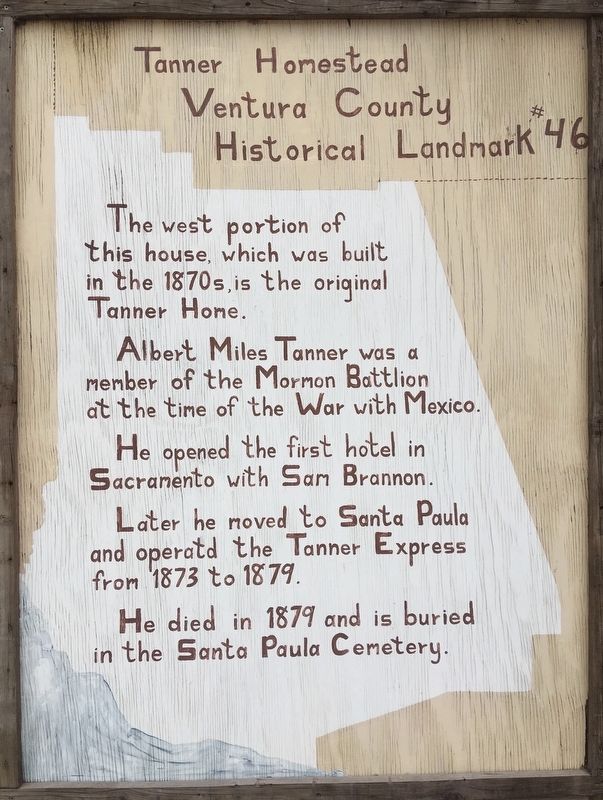 Tanner Homestead
Ventura County
Historical Landmark #46
The west portion of
this house, which was built
in the 1870s, is the original
Tanner Home.
Albert Miles Tanner was a
member of the Mormon Battlion
at the time of the War with Mexico.
He opened the first hotel in
Sacramento with Sam Brannon.
Later he moved to Santa Paula
and operatd the Tanner Express
from 1873 to 1879.
He died in 1879 and is buried
in the Santa Paula Cemetery.